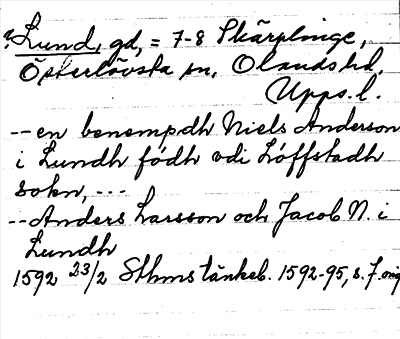 ? Lund, gd, = 7-8 Skärplinge,
Österlövsta sn, Olands hd,
Upps. l.
-- en benempdh Niels Anderson
i Lundh födh vdi Löffstadh
sokn, ---
-- Anders Larsson och Jacob N. i
Lundh
1592 23/2 Sthms tänkeb. 1592-95, s. 7. orig